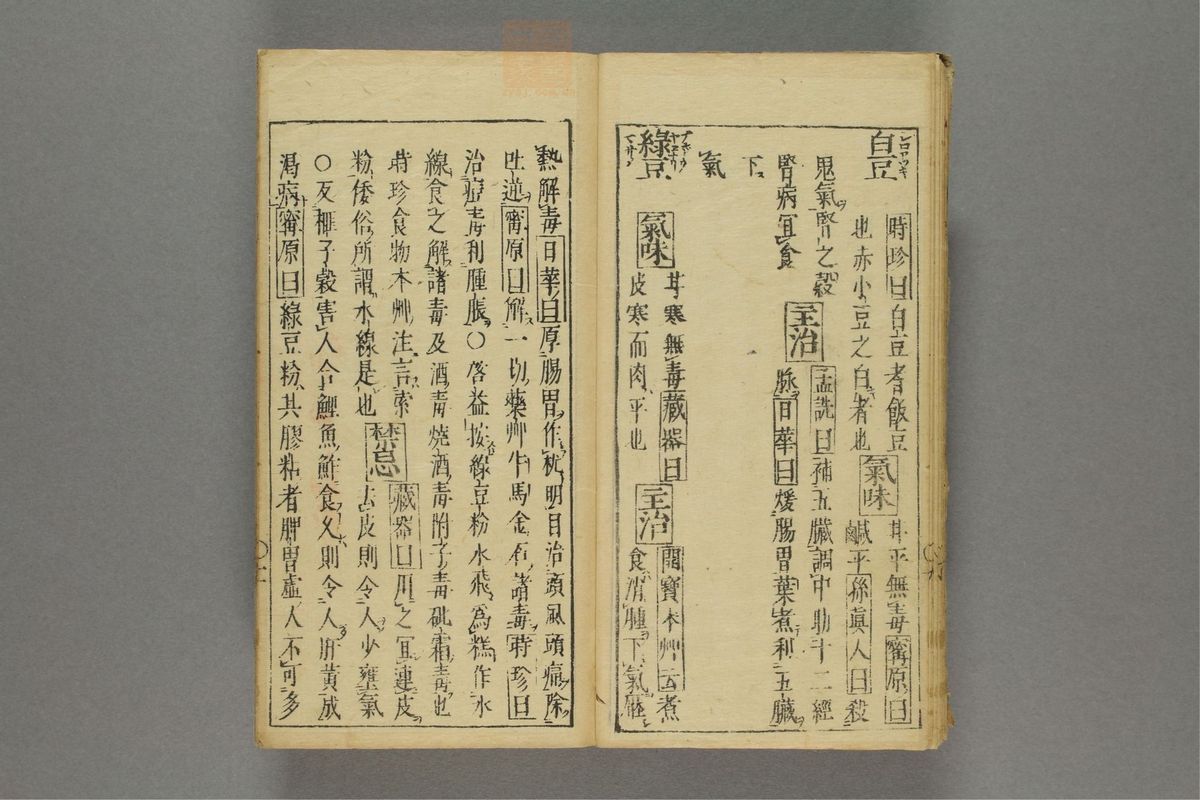 白豆
時珍曰白豆者飯豆
也赤小豆之白者也
氣味
甘平無毒甯原曰
鹹平孫眞人曰殺
鬼氣腎之穀
腎病冝食
主治
孟詵曰補五臟調中助十二經
脉日華曰煖腸胃葉煮利五臟
下
氣
綠豆
氣味
甘寒無毒藏器曰
皮寒而肉平也
主治
開寶本艸云煮
食消腫下氣壓
熱解毒日華曰厚腸胃作枕明目治頭風頭痛除
吐逆甯原曰解一切藥艸牛馬金石諸毒時珍曰
治痘毒利腫脹〇啓益按綠豆粉水飛為糕作水
線食之解諸毒及酒毒燒酒毒附子毒砒霜毒也
時珍食物本艸注言索
粉倭俗所謂水線是也
禁忌
藏器曰用之冝連皮
去皮則令人少壅氣
〇反榧子殼害人合鯉魚鮓食久則令人肝黄成
渴病甯原曰綠豆粉其膠粘者脾胃虛人不可多